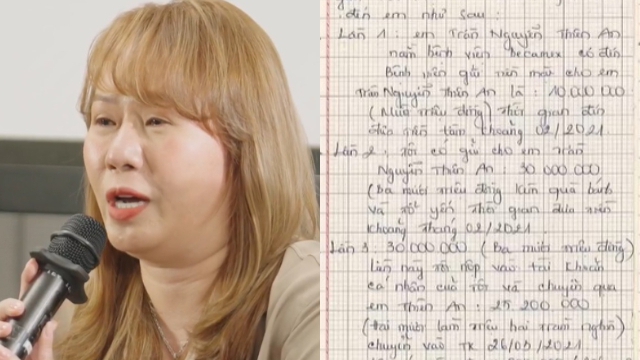 đến em như sau :
Lần 1 : em Trần Nguyễn Thiên An
nằm bệnh viện Becamex có đến
Bệnh viện gửi tiền mặt cho em
Trần Nguyễn Thiên An là : 10 000 000
(Mười triệu đồng) thời gian đến
thăm khoảng 02/2021
Lần 2 : tôi có gửi cho em Trần
Nguyễn Thiên An : 30 000 000
(Ba mươi triệu đồng kèm quà bánh
và tổ yến thời gian đưa tiền
khoảng tháng 02/2021
Lần 3 : 30.000.000 (Ba mươi triệu đồng)
lần này tôi nộp vào tài khoản
cá nhân của tôi và chuyển qua
em Thiên An : 25 200 000
(hai mươi lăm triệu hai trăm nghìn)
chuyển vào TK 26/03/2021